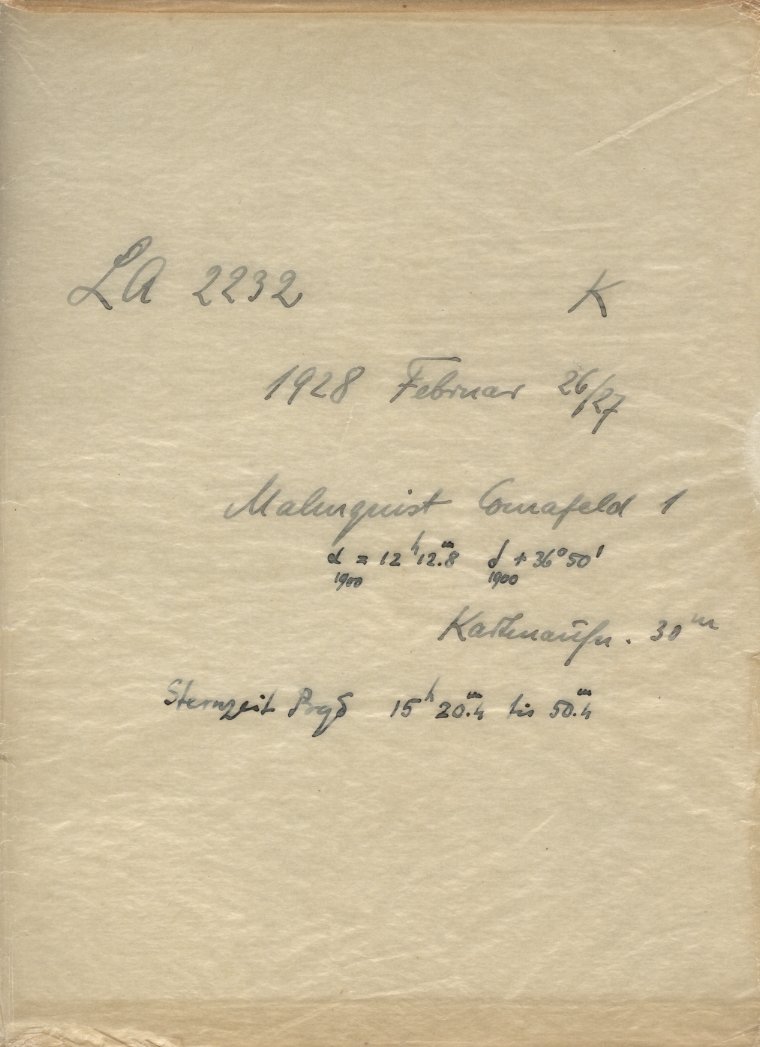 LA 2232 K
1928 Februar 26/27
Malmquist Comafeld 1
α = 12ʰ12.ᵐ8 δ + 36°50'
1900 1900
Kartenaufn. 30ᵐ
Sternzeit Brgd 15ʰ20.ᵐ4 bis 50.ᵐ4